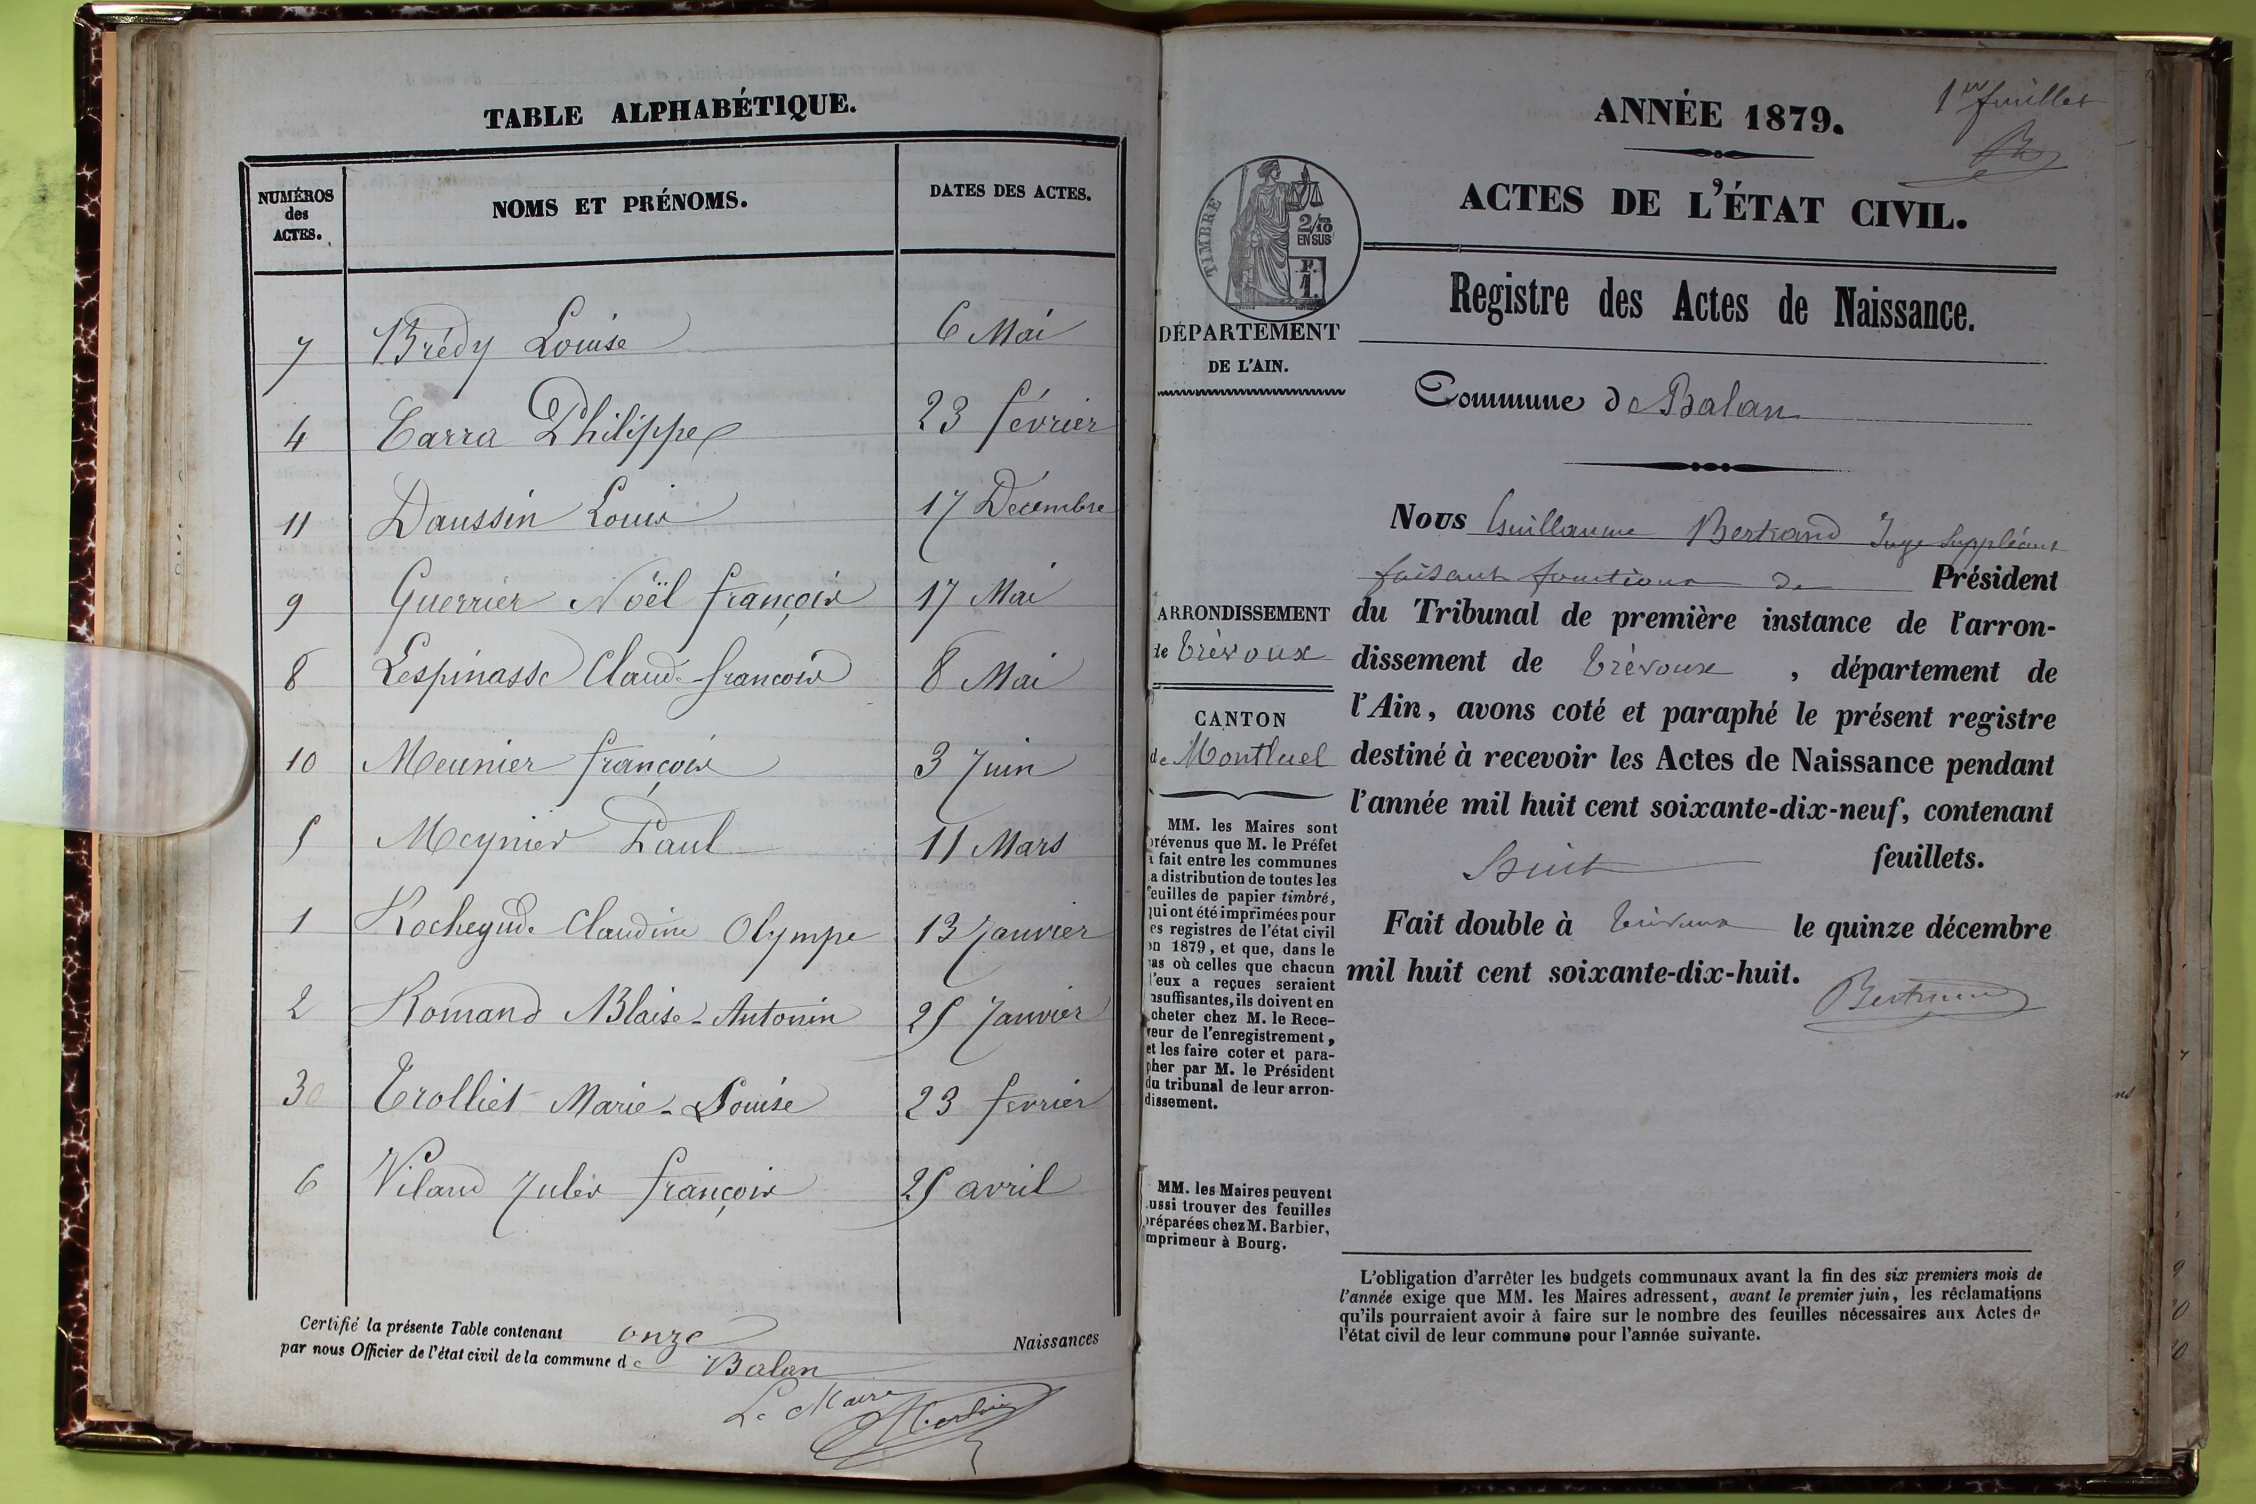 TABLE ALPHABÉTIQUE.
NUMÉROS
des
ACTES.
NOMS ET PRÉNOMS.
DATES DES ACTES.
7 Brédy Louise 6 Mai
4 Carra Philippe 23 février
11 Daussin Louis 17 Décembre
9 Guerrier Noël françois 17 Mai
8 Lespinasse Claude-francois 8 Mai
10 Meunier françois 3 Juin
5 Meynier Paul 11 Mars
1 Rochegude Claudine Olympe 13 Janvier
2 Romand Blaise-Antonin 25 Janvier
3 Trolliet Marie-Louise 23 fevrier
6 Viland Jules françois 25 avril
Certifié la présente Table contenant onze Naissances
par nous Officier de l'état civil de la commune de Balan
Le Maire
1er feuillet
ANNÉE 1879.
ACTES DE L'ÉTAT CIVIL.
TIMBRE
2/10
EN SUS
F.
1.
Registre des Actes de Naissance.
DÉPARTEMENT
DE L'AIN.
Commune de Balan
Nous Guillaume Bertrand Juge Suppléant
faisant fonctions de Président
du Tribunal de première instance de l'arron-
dissement de Trévoux, département de
l'Ain, avons coté et paraphé le présent registre
destiné à recevoir les Actes de Naissance pendant
l'année mil huit cent soixante-dix-neuf, contenant
huit feuillets.
Fait double à Trévoux le quinze décembre
mil huit cent soixante-dix-huit.
Bertrand
ARRONDISSEMENT
de Trévoux
CANTON
de Montluel
MM. les Maires sont
prévenus que M. le Préfet
a fait entre les communes
la distribution de toutes les
feuilles de papier timbré,
qui ont été imprimées pour
les registres de l'état civil
en 1879, et que, dans le
cas où celles que chacun
d'eux a reçues seraient
insuffisantes, ils doivent en
acheter chez M. le Rece-
veur de l'enregistrement,
et les faire coter et para-
pher par M. le Président
du tribunal de leur arron-
dissement.
MM. les Maires peuvent
aussi trouver des feuilles
préparées chez M. Barbier,
imprimeur à Bourg.
L'obligation d'arrêter les budgets communaux avant la fin des six premiers mois de
l'année exige que MM. les Maires adressent, avant le premier juin, les réclamations
qu'ils pourraient avoir à faire sur le nombre des feuilles nécessaires aux Actes de
l'état civil de leur commune pour l'année suivante.